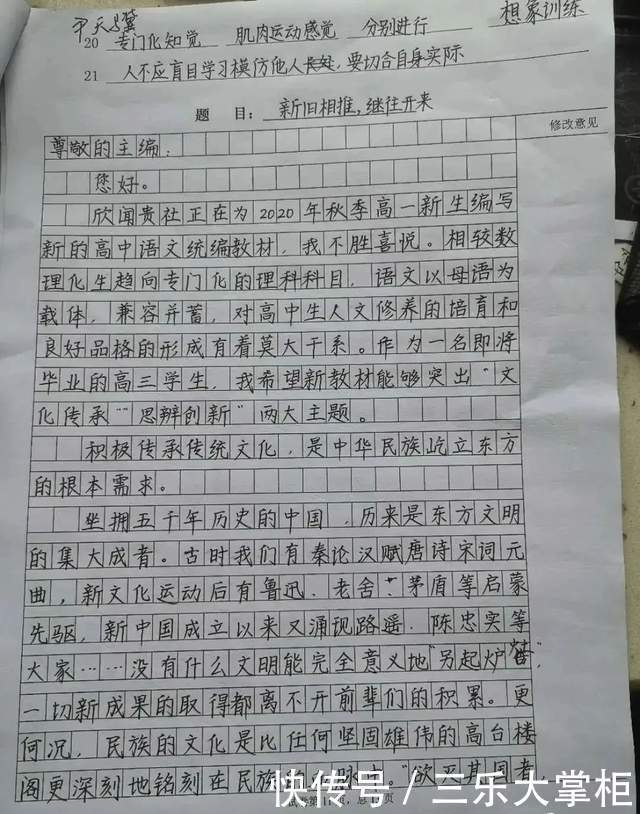 20 专门化知觉 肌肉运动感觉 分别进行 想象训练
21 人不应盲目学习模仿他人长处,要切合自身实际
题 目: 新旧相推,继往开来
修改意见
尊敬的主编:
您好。
欣闻贵社正在为2020年秋季高一新生编写
新的高中语文统编教材,我不胜喜悦。相较数
理化生趋向专门化的理科科目,语文以母语为
载体,兼容并蓄,对高中生人文修养的培育和
良好品格的形成有着莫大干系。作为一名即将
毕业的高三学生,我希望新教材能够突出“文
化传承”“思辨创新”两大主题。
积极传承传统文化,是中华民族屹立东方
的根本需求。
坐拥五千年历史的中国,历来是东方文明
的集大成者。古时我们有秦论汉赋唐诗宋词元
曲,新文化运动后有鲁迅、老舍、茅盾等启蒙
先驱,新中国成立以来又涌现路遥、陈忠实等
大家……没有什么文明能完全意义地“另起炉灶”,
一切新成果的取得都离不开前辈们的积累。更
何况,民族的文化是比任何坚固雄伟的高台楼
阁更深刻地铭刻在民族 。“欲灭其国者,
快传号 / 三乐大掌柜